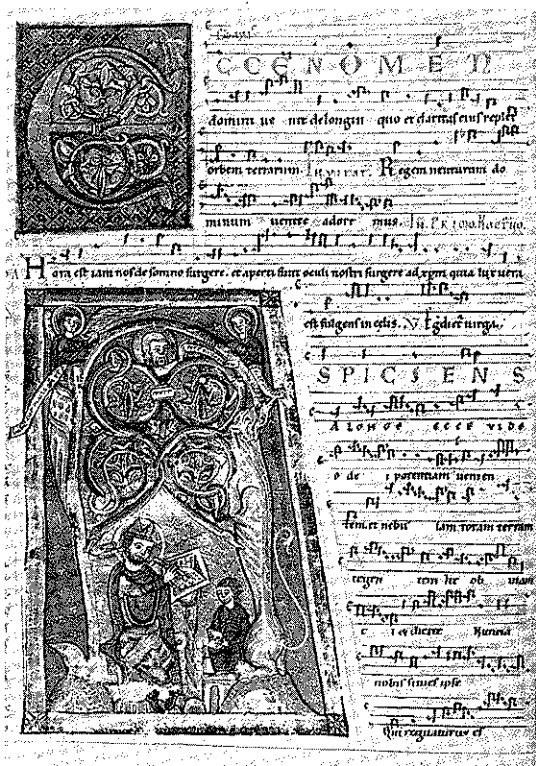 ECCE NOMEN
domini ue nit de longin quo et claritas eius replet
orbem terrarum. Inuitat. Regem uenturum do
minum uenite adore mus. In primo Noct̄no
Hora est iam nos de somno surgere. et aperti sunt oculi nostri surgere ad xpm quia lux uera
est fulgens in celis. V Egrediet uirga.
ASPICIENS
A LONGE ECCE VIDE
o de i potentiam uenien
tem et nebu lam totam terram
tegen tem Ite ob uiam
e i et dicite Nuncia
nobis si tu es ipse
Qui regnaturus es